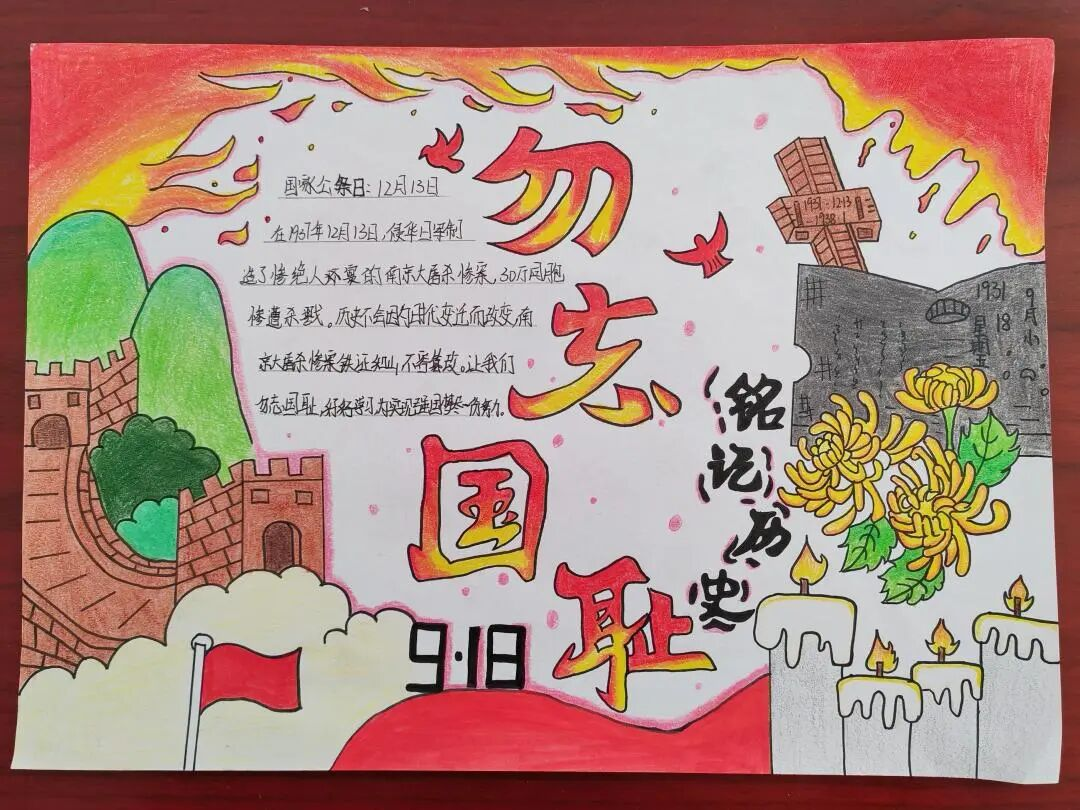 国家公祭日：12月13日
在1937年12月13日，侵华日军制
造了惨绝人寰的南京大屠杀惨案，30万同胞
惨遭杀戮。历史不会因时代变迁而改变，南
京大屠杀惨案铁证如山，不容篡改。让我们
勿忘国耻，好好学习为实现强国梦 努力。
勿忘国耻
铭记历史
9·18
1937.12.13
-1938.1
1931
9月小
18
星期五